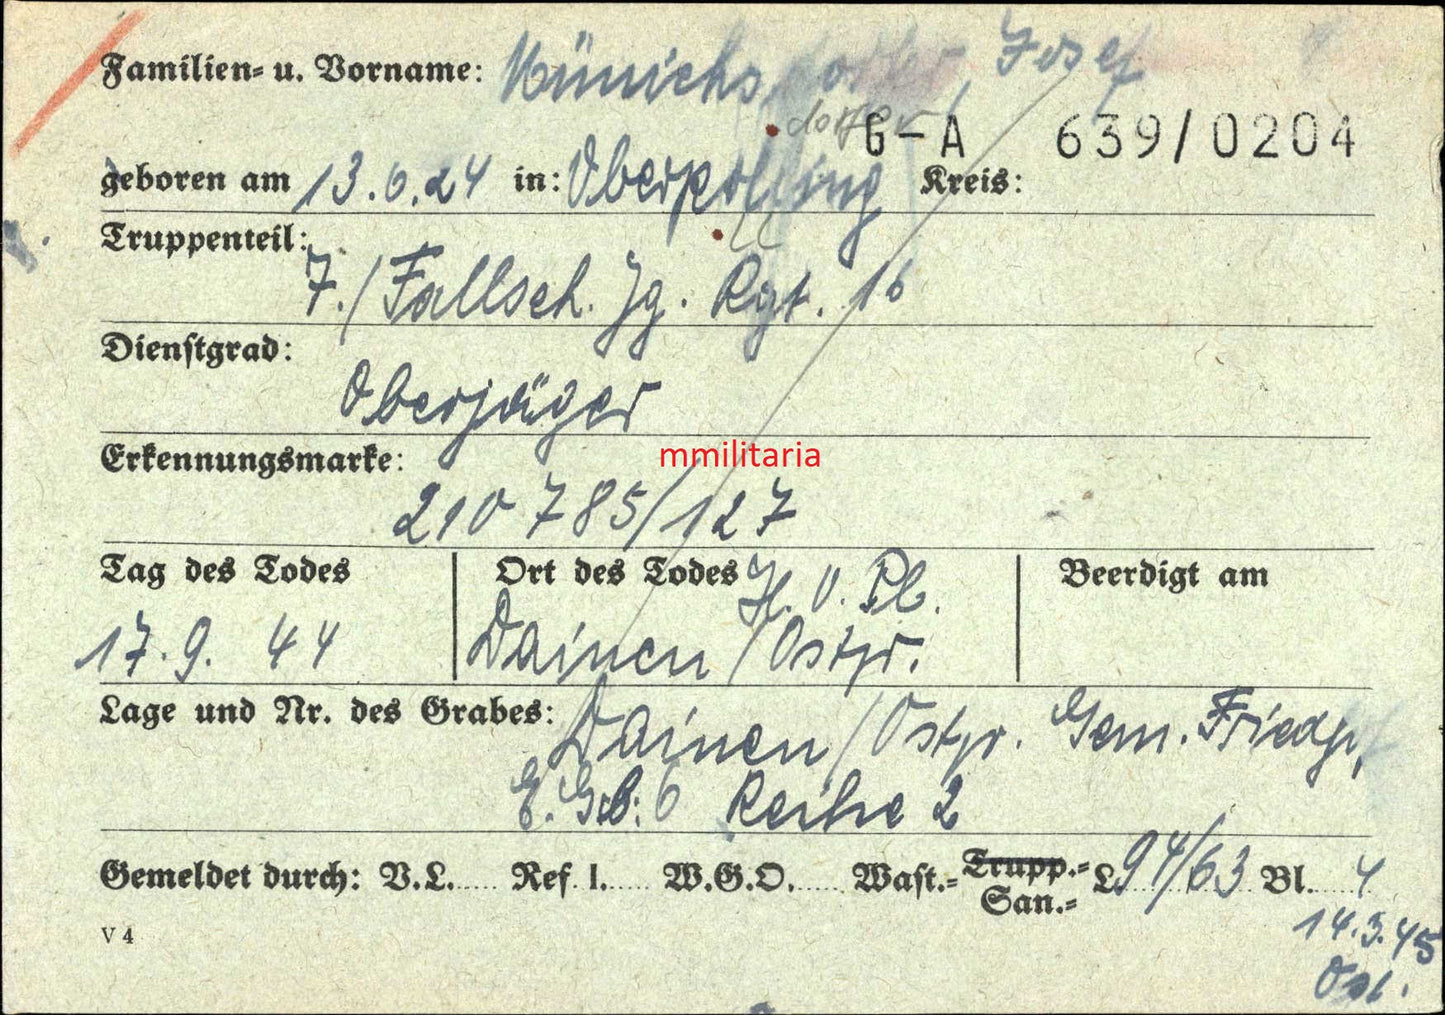 Familien- u. Vorname: Münichsdorfer, Josef
dorfer
G-A 639/0204
geboren am 13.6.24 in: Oberpolling Kreis:
ll
Truppenteil:
7./Fallsch. Jg. Rgt. 16
Dienstgrad:
Oberjäger
Erkennungsmarke:
210 785/127
Tag des Todes Ort des Todes H.V.Pl. Beerdigt am
17.9.44 Dainen/Ostpr.
Lage und Nr. des Grabes: Dainen/Ostpr. Gem. Friedh,
E. Grb: 6 Reihe 2
Gemeldet durch: V.L. Ref. I. W.G.O. Wast.- Trupp.- L 94/63 Bl. 4
San.-
V 4
14.3.45
mmilitaria